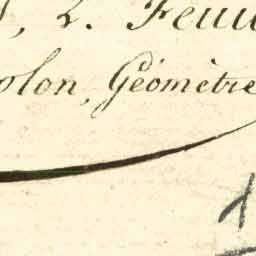 , 2. Feui
olon, Géomètre
1